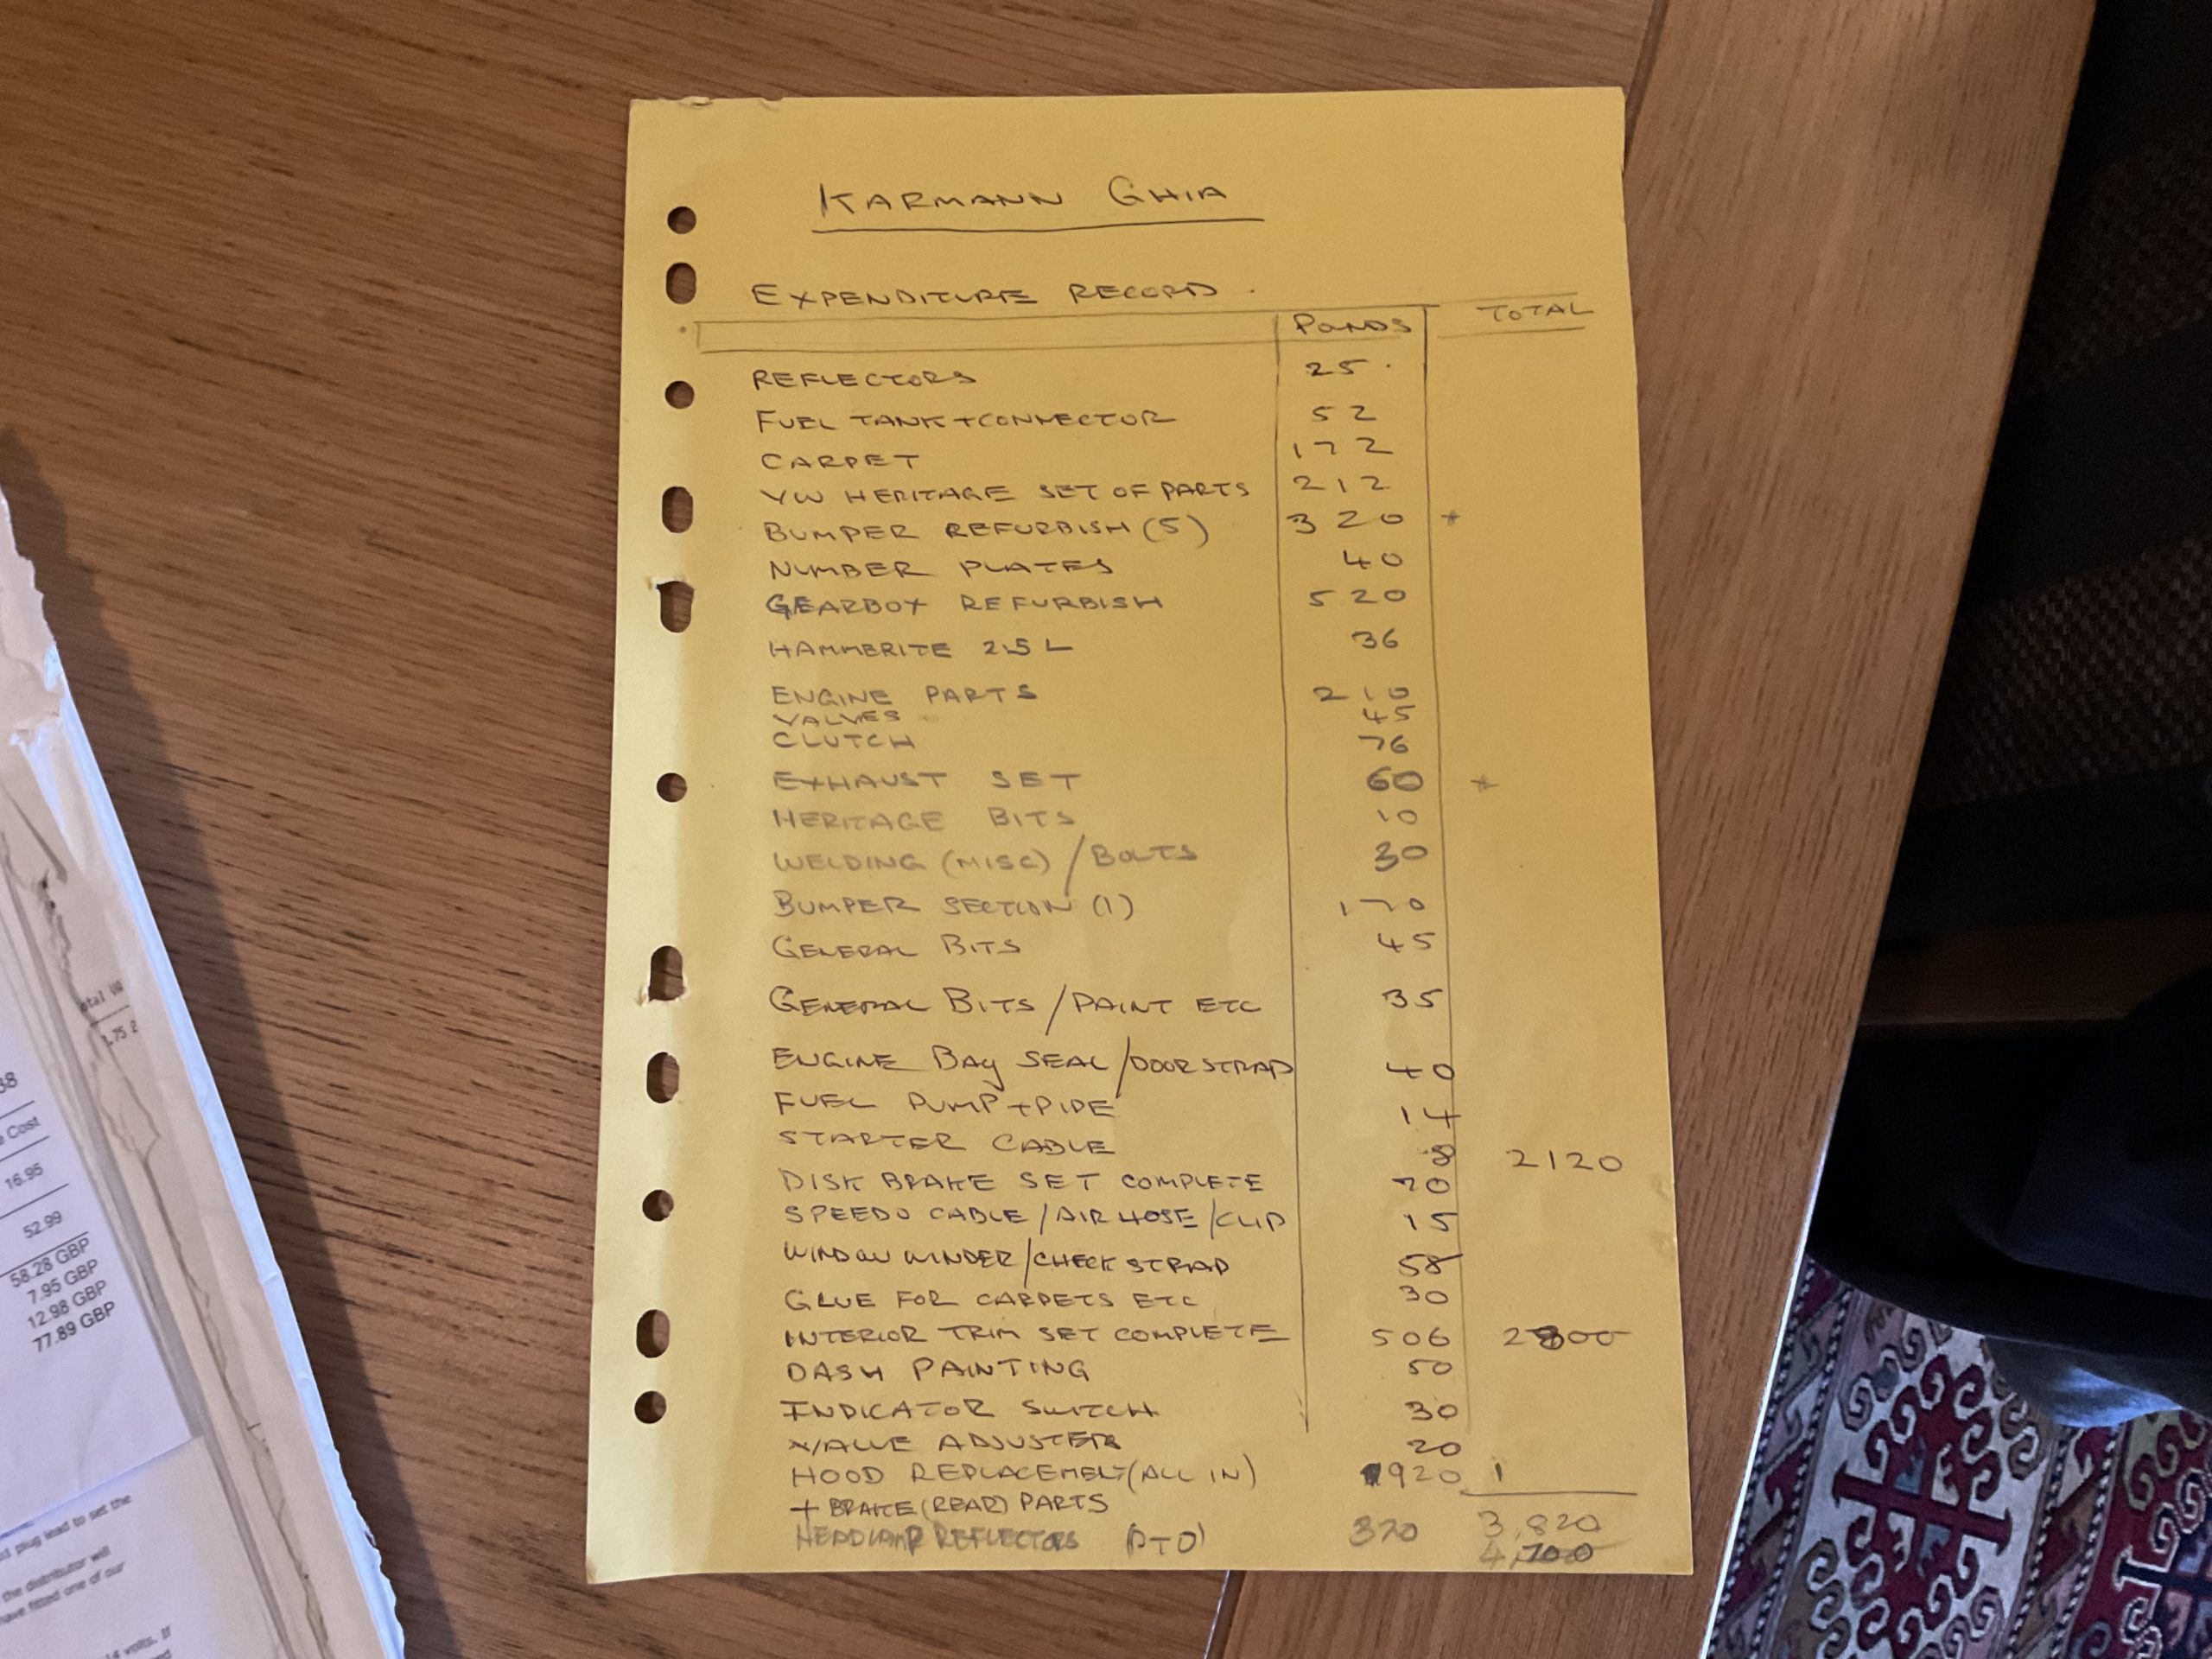 KARMANN GHIA
EXPENDITURE RECORD.
POUNDS TOTAL
REFLECTORS 25.
FUEL TANK + CONNECTOR 52
CARPET 172
VW HERITAGE SET OF PARTS 212
BUMPER REFURBISH (5) 320 +
NUMBER PLATES 40
GEARBOX REFURBISH 520
HAMMERITE 2.5 L 36
ENGINE PARTS 210
VALVES 45
CLUTCH 76
EXHAUST SET 60 +
HERITAGE BITS 10
WELDING (MISC) / BOLTS 30
BUMPER SECTION (1) 170
GENERAL BITS 45
GENERAL BITS / PAINT ETC 35
ENGINE BAY SEAL / DOOR STRAP 40
FUEL PUMP + PIPE 14
STARTER CABLE 8 2120
DISK BRAKE SET COMPLETE 70
SPEEDO CABLE / AIR HOSE / CLIP 15
WINDOW WINDER / CHECK STRAP 58
GLUE FOR CARPETS ETC 30
INTERIOR TRIM SET COMPLETE 506 2800
DASH PAINTING 50
INDICATOR SWITCH 30
VALVE ADJUSTERS 20
HOOD REPLACEMENT (ALL IN) 920 1
+ BRAKE (REAR) PARTS
HEADLAMP REFLECTORS (PTO) 370 3,820
4,700
Cost
16.95
52.99
58.28 GBP
7.95 GBP
12.98 GBP
77.89 GBP
plug lead to set the
the distributor will
have fitted one of our
volts. If